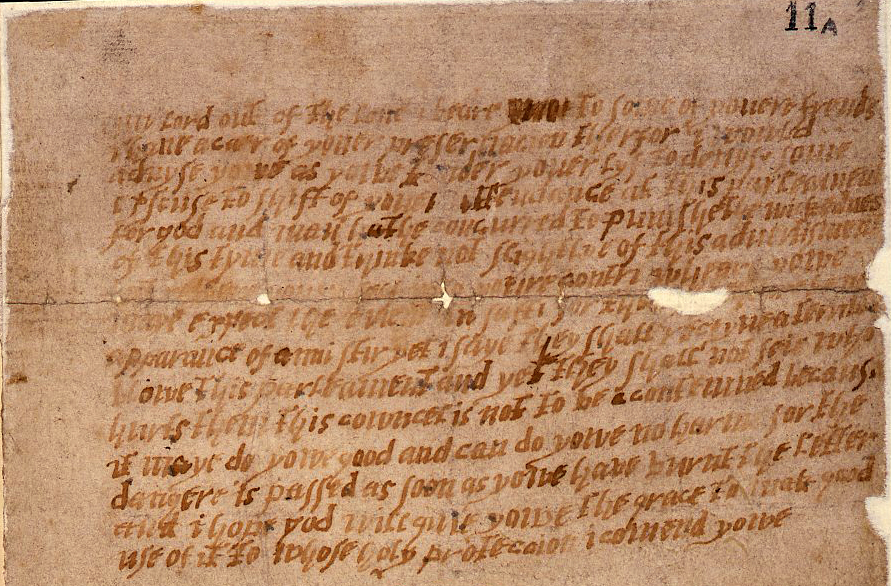 11A
my lord out of the love i beare to some of youere frends
i have a caer of youer preservacion therfor i would
advyse yowe as yowe tender youer lyf to devyse some
exscuse to shift of youer attendance at this parleament
for god and man hathe concurred to punishe the wickednes
of this tyme and thinke not slightlye of this advertisment
youre contri wheare yowe
maye expect the event in safti for thoughe
apparance of anni stir yet i saye they shall receyve a terrible
blowe this parleament and yet they shall not seie who
hurts them this cowncel is not to be acontemned because
it maye do yowe good and can do yowe no harme for the
dangere is passed as soon as yowe have burnt the letter
and i hope god will give yowe the grace to mak good
use of it to whose holy proteccion i comend yowe